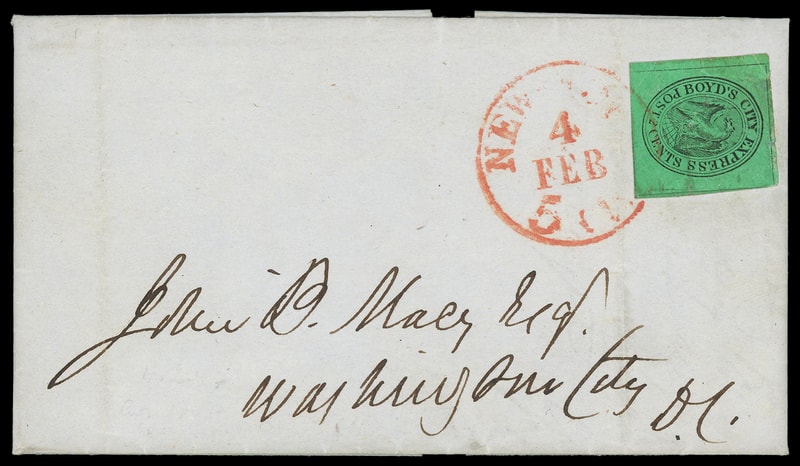 NEW
4
FEB
5
BOYD'S CITY EXPRESS POST 2 CENTS
John B. Macy Esq.
Washington City
D.C.